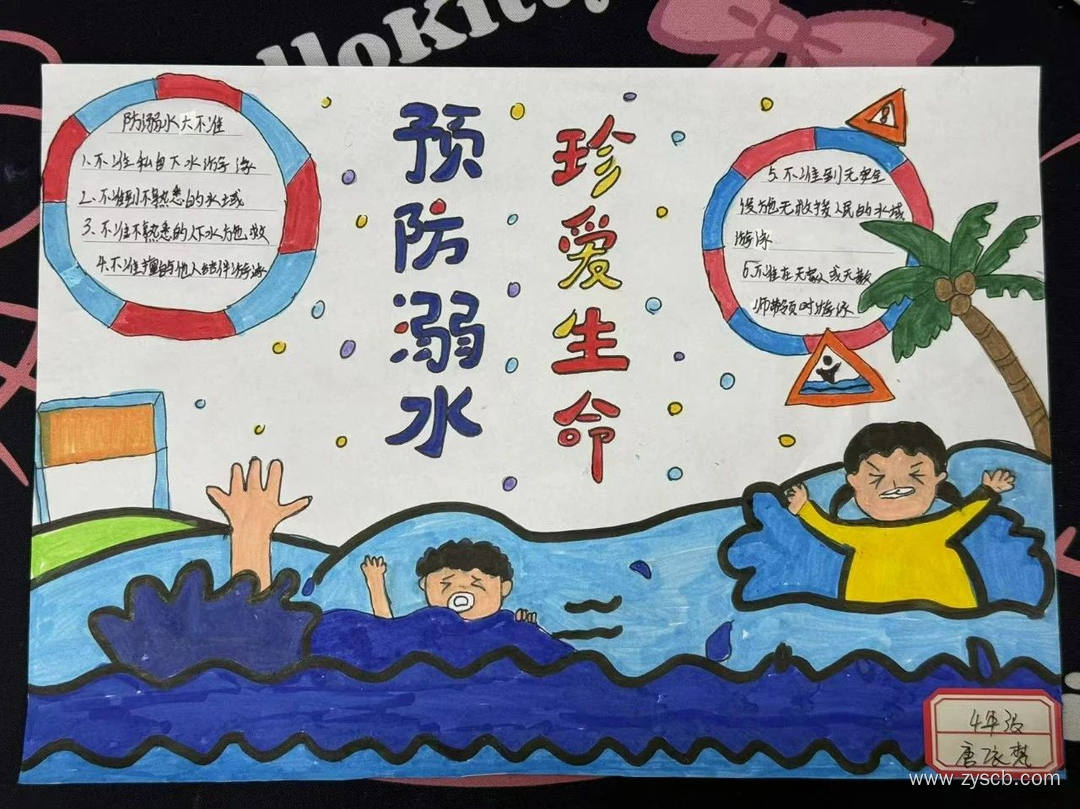 lloKitty
预防溺水
珍爱生命
防溺水六不准
1.不准私自下水游泳
2.不准到不熟悉的水域
3.不准不熟悉的人下水方也救
4.不准擅自与他人结伴游泳
5.不准到无安全
设施无救援人民的水域
游泳
6.不准在无教或无教
师带领时游泳
4年级
www.zyscb.com